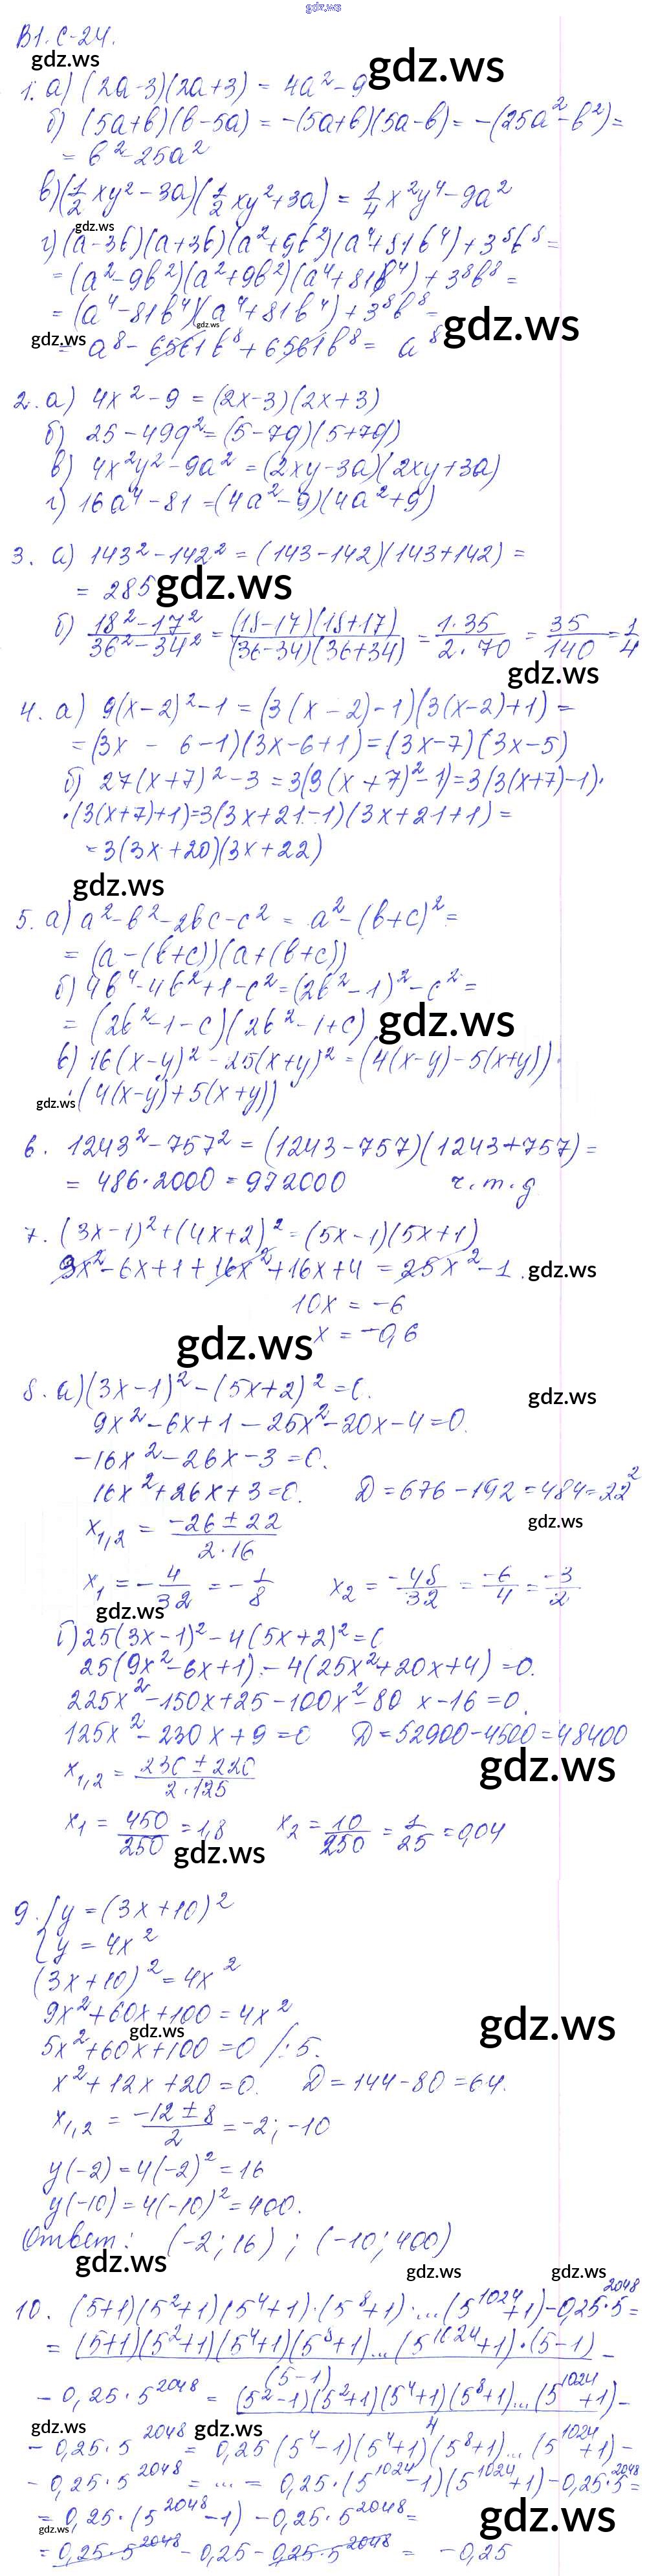 gdz.ws
В1. С-24.
gdz.ws
1. а) (2a-3)(2a+3) = 4a² - 9
gdz.ws
б) (5a+b)(b-5a) = -(5a+b)(5a-b) = -(25a² - b²) =
= b² - 25a²
в) (1/2 xy² - 3a)(1/2 xy² + 3a) = 1/4 x²y⁴ - 9a²
gdz.ws
г) (a-3b)(a+3b)(a²+9b²)(a⁴+81b⁴) + 3⁸b⁸ =
= (a²-9b²)(a²+9b²)(a⁴+81b⁴) + 3⁸b⁸ =
= (a⁴-81b⁴)(a⁴+81b⁴) + 3⁸b⁸ =
gdz.ws
gdz.ws
gdz.ws
= a⁸ - 6561b⁸ + 6561b⁸ = a⁸
2. а) 4x² - 9 = (2x-3)(2x+3)
б) 25 - 49q² = (5-7q)(5+7q)
в) 4x²y² - 9a² = (2xy-3a)(2xy+3a)
г) 16a⁴ - 81 = (4a²-9)(4a²+9)
3. а) 143² - 142² = (143-142)(143+142) =
= 285
gdz.ws
б) (18²-17²)/(36²-34²) = ((18-17)(18+17))/((36-34)(36+34)) = (1·35)/(2·70) = 35/140 = 1/4
gdz.ws
4. а) 9(x-2)² - 1 = (3(x-2)-1)(3(x-2)+1) =
= (3x - 6-1)(3x-6+1) = (3x-7)(3x-5)
б) 27(x+7)² - 3 = 3(9(x+7)²-1) = 3(3(x+7)-1)·
·(3(x+7)+1) = 3(3x+21-1)(3x+21+1) =
= 3(3x+20)(3x+22)
gdz.ws
5. а) a²-b²-2bc-c² = a²-(b+c)² =
= (a-(b+c))(a+(b+c))
б) 4b⁴-4b²+1-c² = (2b²-1)²-c² =
= (2b²-1-c)(2b²-1+c)
gdz.ws
в) 16(x-y)² - 25(x+y)² = (4(x-y)-5(x+y))·
gdz.ws
·(4(x-y)+5(x+y))
6. 1243² - 757² = (1243-757)(1243+757) =
= 486·2000 = 972000 ч.т.д
7. (3x-1)² + (4x+2)² = (5x-1)(5x+1)
9x²-6x+1+16x²+16x+4 = 25x²-1.
gdz.ws
10x = -6
gdz.ws
x = -0,6
8. а) (3x-1)² - (5x+2)² = 0.
gdz.ws
9x²-6x+1-25x²-20x-4=0.
-16x²-26x-3=0.
16x²+26x+3=0. D=676-192=484=22²
gdz.ws
x₁,₂ = (-26±22)/(2·16)
x₁ = -4/32 = -1/8 x₂ = -48/32 = -6/4 = -3/2
gdz.ws
б) 25(3x-1)² - 4(5x+2)² = 0
25(9x²-6x+1) - 4(25x²+20x+4) = 0.
225x²-150x+25-100x²-80 x-16=0.
125x²-230x+9=0 D=52900-4500=48400
gdz.ws
x₁,₂ = (230±220)/(2·125)
x₁ = 450/250 = 1,8 x₂ = 10/250 = 1/25 = 0,04
gdz.ws
9. { y = (3x+10)²
{ y = 4x²
(3x+10)² = 4x²
9x²+60x+100 = 4x²
gdz.ws
gdz.ws
5x²+60x+100=0 /:5.
x²+12x+20=0. D=144-80=64.
x₁,₂ = (-12±8)/2 = -2; -10
y(-2) = 4(-2)² = 16
y(-10) = 4(-10)² = 400.
Ответ: (-2; 16) ; (-10; 400)
gdz.ws
gdz.ws
gdz.ws
10. (5+1)(5²+1)(5⁴+1)·(5⁸+1)·...(5¹⁰²⁴+1)-0,25·5²⁰⁴⁸ =
= ((5+1)(5²+1)(5⁴+1)(5⁸+1)...(5¹⁰²⁴+1)·(5-1))/(5-1) -
- 0,25·5²⁰⁴⁸ = ((5²-1)(5²+1)(5⁴+1)(5⁸+1)...(5¹⁰²⁴+1))/4 -
gdz.ws
gdz.ws
- 0,25·5²⁰⁴⁸ = 0,25(5⁴-1)(5⁴+1)(5⁸+1)...(5¹⁰²⁴+1) -
- 0,25·5²⁰⁴⁸ = ... = 0,25·(5¹⁰²⁴-1)(5¹⁰²⁴+1)-0,25·5²⁰⁴⁸ =
= 0,25·(5²⁰⁴⁸-1) - 0,25·5²⁰⁴⁸ =
gdz.ws
gdz.ws
= 0,25·5²⁰⁴⁸ - 0,25 - 0,25·5²⁰⁴⁸ = -0,25